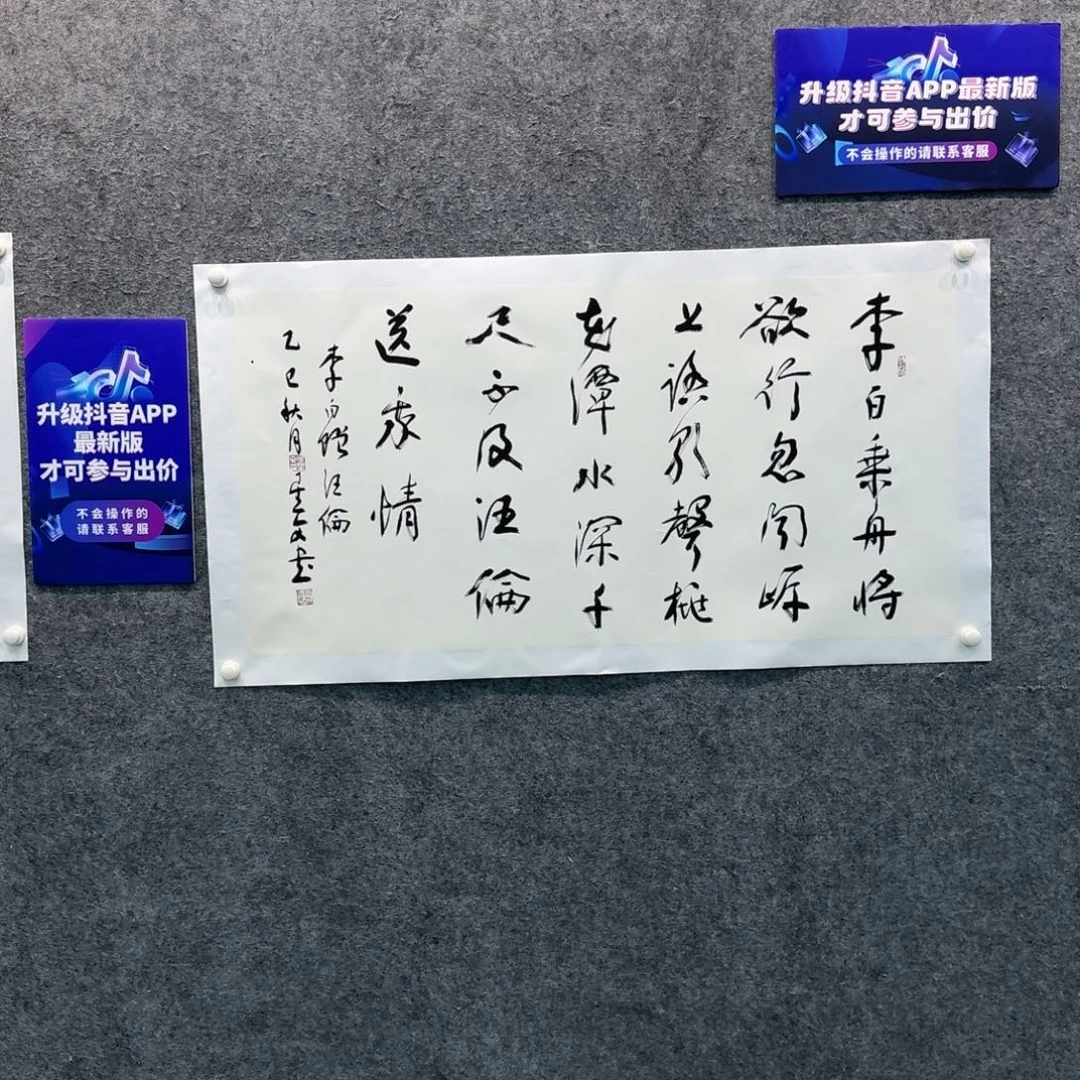 升级抖音APP最新版
才可参与出价
不会操作的请联系客服
李白乘舟將
欲行忽聞岸
上踏歌聲桃
花潭水深千
尺不及汪倫
送我情
李白贈汪倫
乙巳秋月 文书
升级抖音APP
最新版
才可参与出价
不会操作的
请联系客服